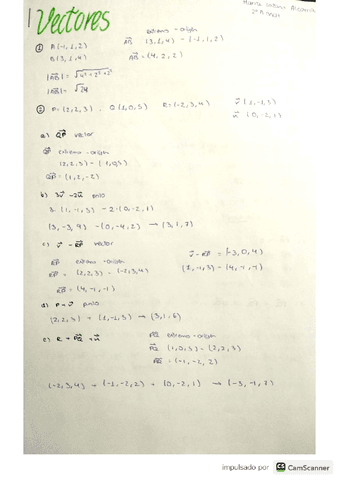 Vectores
① A(-1,1,2)
B(3,1,4)
extremo - origen
AB (3,1,4) - (-1,1,2)
AB = (4,2,2)
|AB| = √4²+2²+2²
|AB| = √24
② P=(2,2,3) . Q(1,0,5) R=(-2,3,4) v(1,-1,3)
u(0,-2,1)
a) QP vector
QP extremo - origen
(2,2,3) - (1,0,5)
QP = (1,2,-2)
b) 3v - 2u
3·(1,-1,3) - 2·(0,-2,1)
(3,-3,9) - (0,-4,2) → (3,1,7)
c) v - RP vector
RP extremo - origen
RP = (2,2,3) - (-2,3,4)
RP = (4,-1,-1)
v - RP = (-3,0,4)
(1,-1,3) - (4,-1,-1)
d) P + v punto
(2,2,3) + (1,-1,3) → (3,1,6)
e) R + PQ + u
PQ extremo - origen
PQ (1,0,5) - (2,2,3)
PQ = (-1,-2,2)
(-2,3,4) + (-1,-2,2) + (0,-2,1) → (-3,-1,7)
impulsado por CS CamScanner